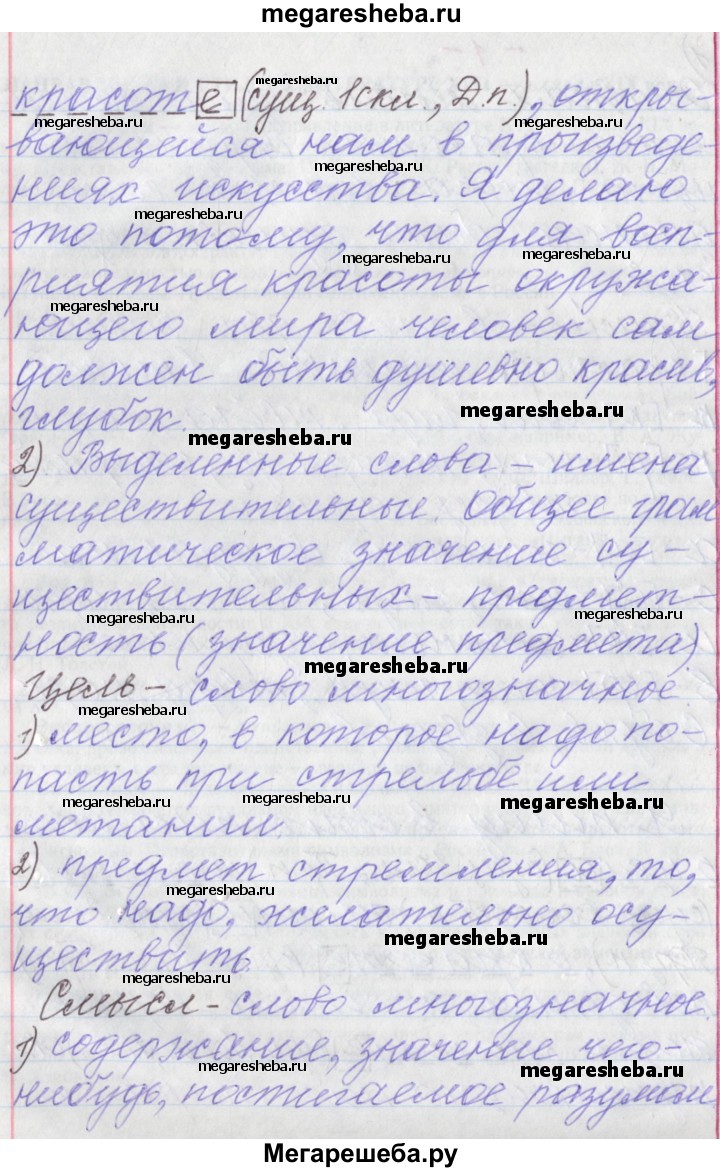 megaresheba.ru
красоте (сущ 1скл., Д.п.), откры-
вающейся нам в произведе-
ниях искусства. Я делаю
это потому, что для восп-
риятия красоты окружа-
ющего мира человек сам
должен быть душевно красив,
глубок.
2) Выделенные слова – имена
существительные. Общее грам
матическое значение су-
ществительных – предмет-
ность (значение предмета).
Цель – слово многозначное.
1) место, в которое надо по-
пасть при стрельбе или
метании.
2) предмет стремления, то,
что надо, желательно осу-
ществить.
Смысл – слово многозначное.
1) содержание, значение чего-
нибудь, постигаемое разумом
Мегарешеба.ру